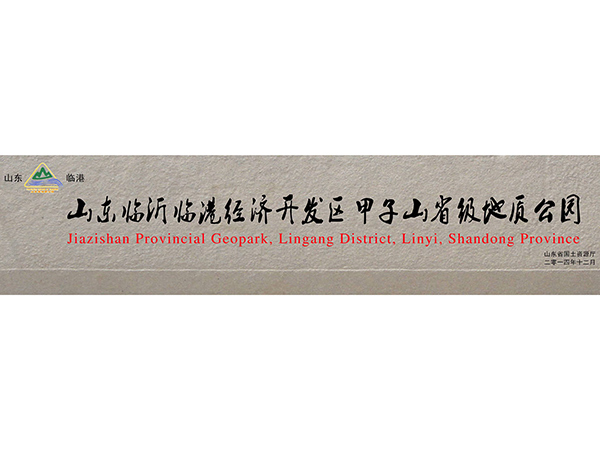 山东 临港
山东临沂临港经济开发区甲子山省级地质公园
Jiazishan Provincial Geopark, Lingang District, Linyi, Shandong Province
山东省国土资源厅
二零一四年十二月